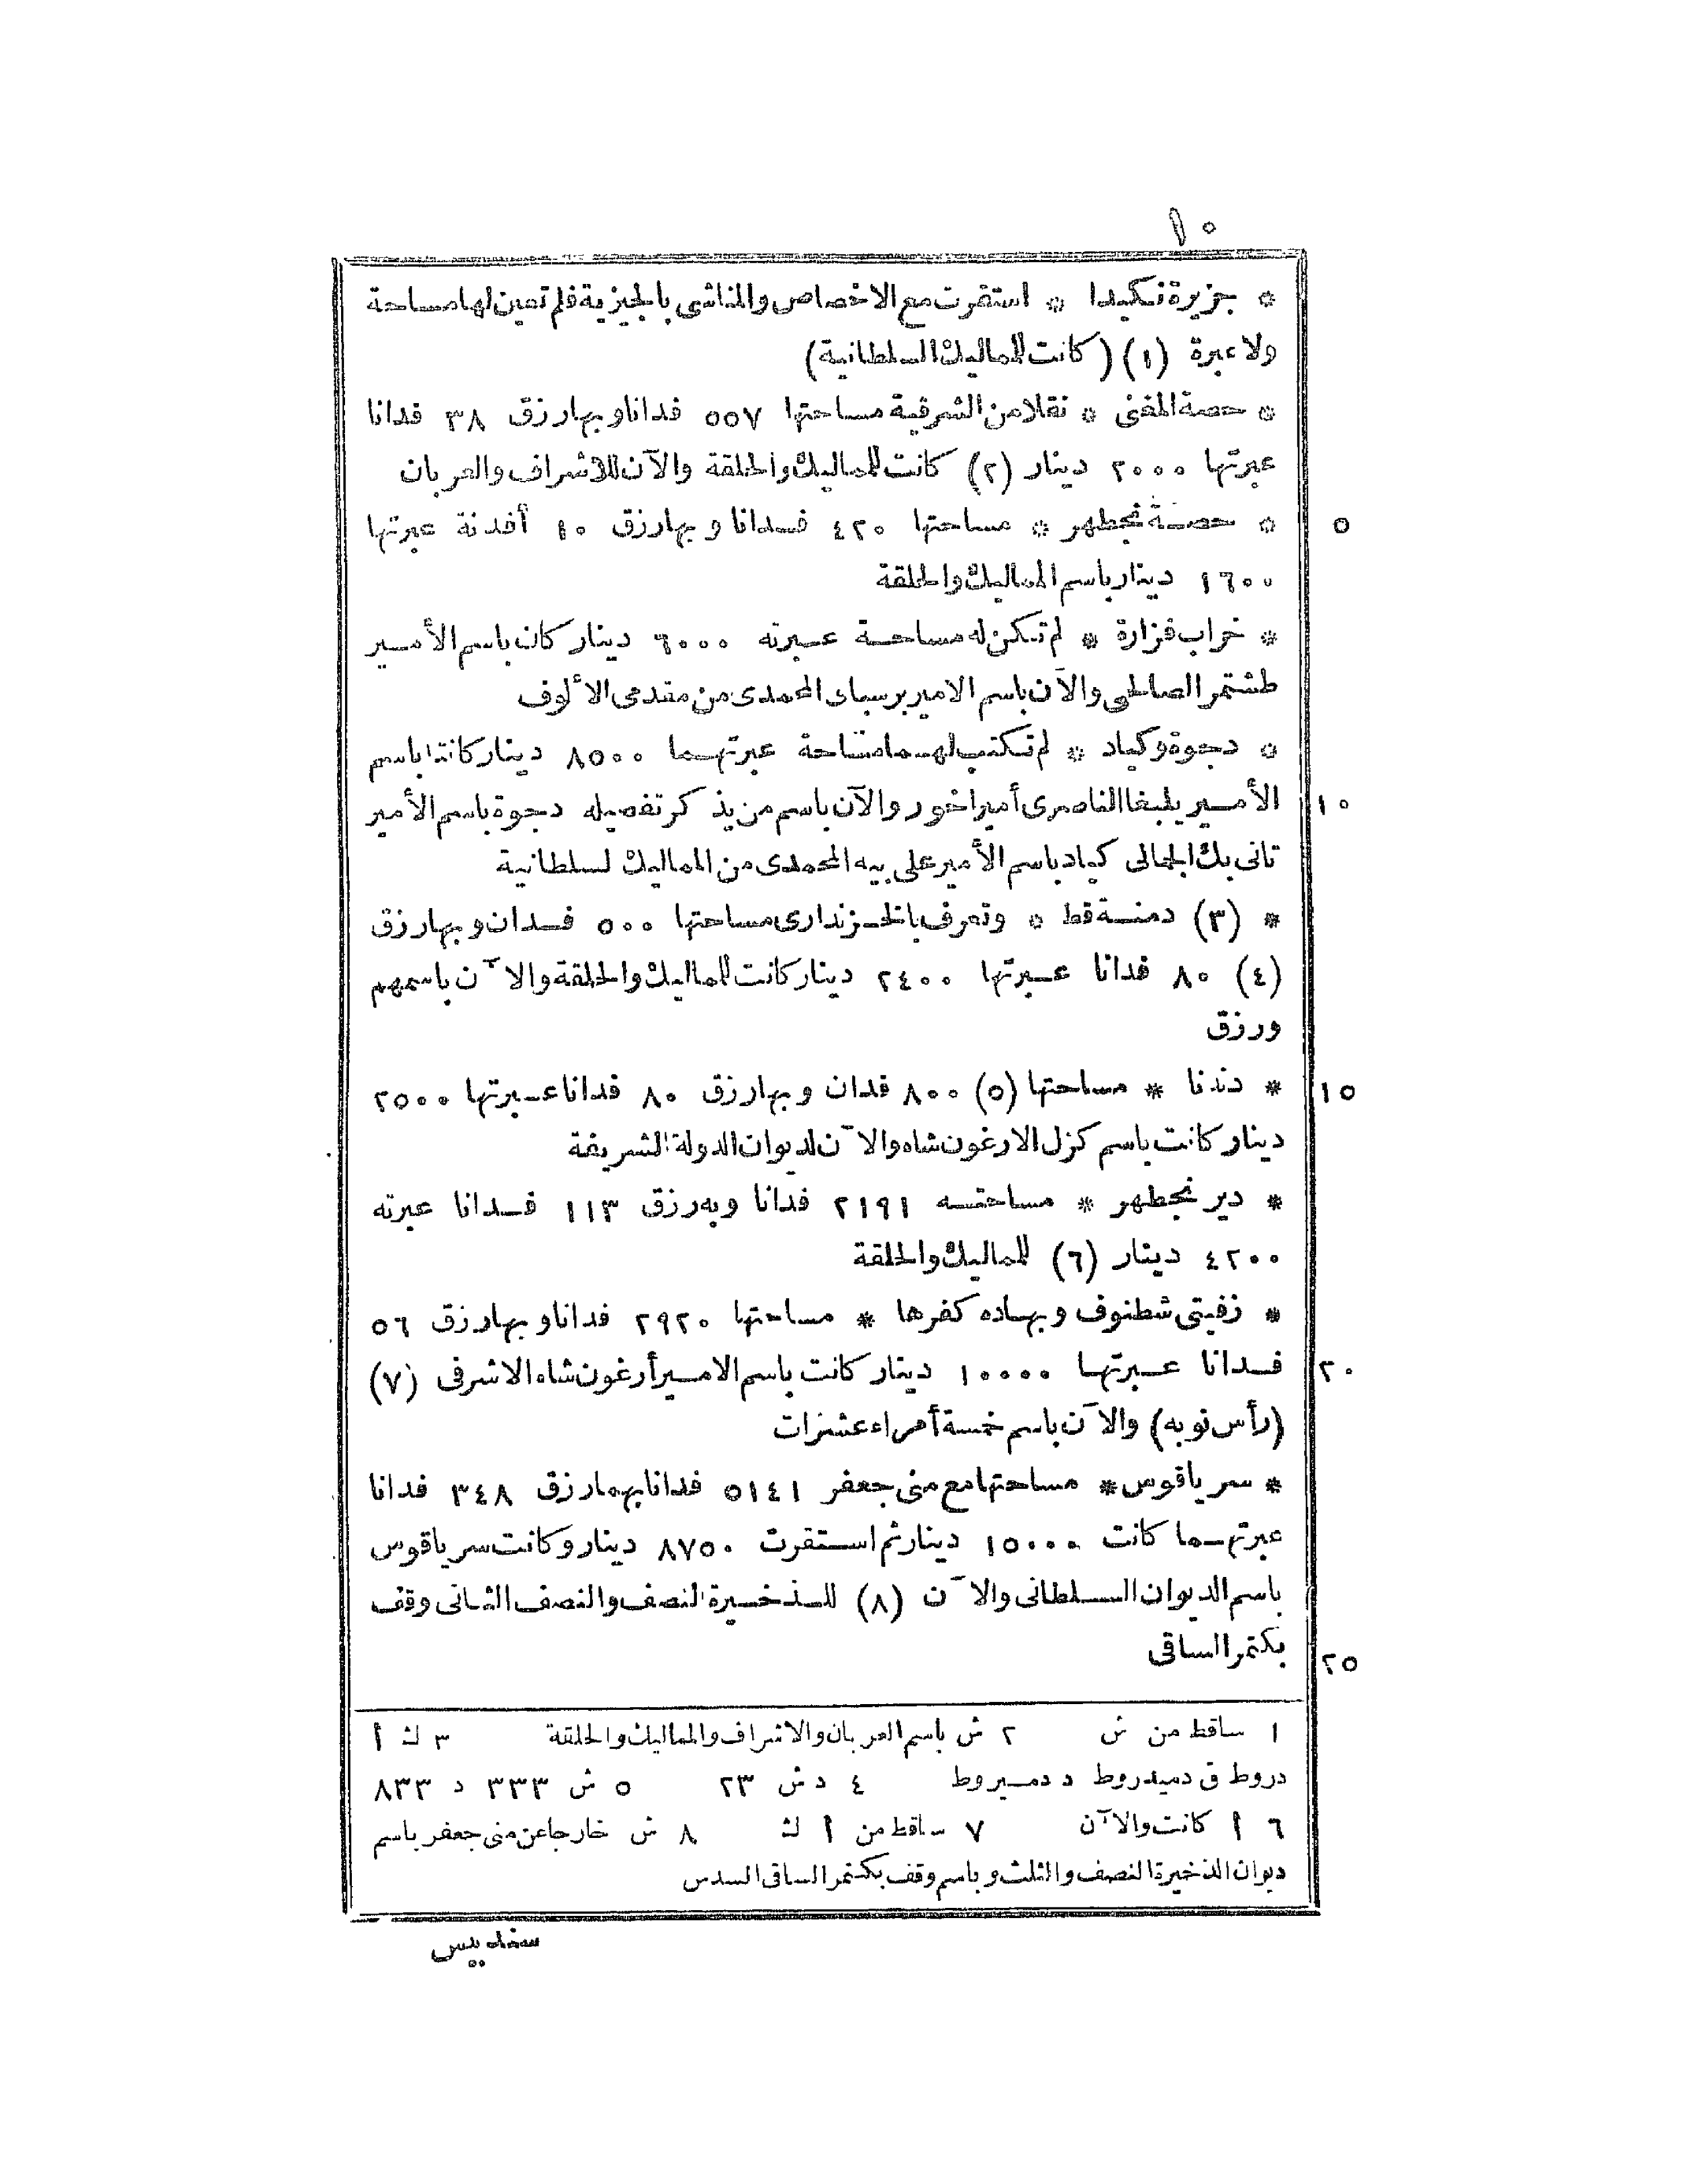 ١٠
* جزيرة نكيدا * استقرت مع الاخصاص والمناشى بالجيزية فلم تعين لها مساحة
ولا عبرة (١) (كانت للماليك السلطانية)
* حصة المغنى * نقلا من الشرقية مساحتها ٥٥٧ فدانا وبها رزق ٣٨ فدانا
عبرتها ٢٠٠٠ دينار (٢) كانت للماليك والحلقة والآن للاشراف والعربان
* حصة نجطهر * مساحتها ٤٢٠ فدانا وبها رزق ١٠ أفدنة عبرتها
٥
١٦٠٠ دينار باسم المماليك والحلقة
* خراب فزارة * لم تكن له مساحة عبرته ٦٠٠٠ دينار كان باسم الأمير
طشتمر الصالحى والآن باسم الامير برسباى المحمدى من مقدمى الألوف
* دجوة وكياد * لم تكتب لهما مساحة عبرتهما ٨٥٠٠ دينار كانتا باسم
الأمير يلبغا الناصرى أمير اخور والآن باسم من يذكر تفصيله دجوة باسم الأمير
١٠
تانى بك الجمالى كياد باسم الأمير على بيه المحمدى من المماليك لسلطانية
* (٣) دمنة قط * وتعرف بالخزندارى مساحتها ٥٠٠ فدان وبها رزق
(٤) ٨٠ فدانا عبرتها ٢٤٠٠ دينار كانت للماليك والحلقة والآن باسمهم
ورزق
* دندنا * مساحتها (٥) ٨٠٠ فدان وبها رزق ٨٠ فدانا عبرتها ٢٥٠٠
١٥
دينار كانت باسم كزل الارغون شاه والآن لديوان الدولة الشريفة
* دير نجطهر * مساحته ٢١٩١ فدانا وبه رزق ١١٣ فدانا عبرته
٤٢٠٠ دينار (٦) للماليك والحلقة
* زفيتى شطنوف وبهاده كفرها * مساحتها ٢٩٢٠ فدانا وبها رزق ٥٦
فدانا عبرتها ١٠٠٠٠ دينار كانت باسم الامير أرغون شاه الاشرفى (٧)
٢٠
(رأس نوبه) والآن باسم خمسة أمراء عشرات
* سرياقوس * مساحتها مع منى جعفر ٥١٤١ فدانا بهما رزق ٣٤٨ فدانا
عبرتهما كانت ١٥٠٠٠ دينار ثم استقرت ٨٧٥٠ دينار وكانت سرياقوس
باسم الديوان السلطانى والآن (٨) للذخيرة النصف والنصف الثانى وقف
بكتمر الساقى
٢٥
١ ساقط من ش ٢ ش باسم العربان والاشراف والمماليك والحلقة ٣ ك أ
دروط ق دميدروط د دمسيروط ٤ د ش ٢٣ ٥ ش ٣٣٣ د ٨٣٣
٦ أ كانت والآن ٧ ساقط من أ ك ٨ ش خارجا عن منى جعفر باسم
ديوان الذخيرة النصف والثلث وباسم وقف بكتمر الساقى السدس
سندبيس